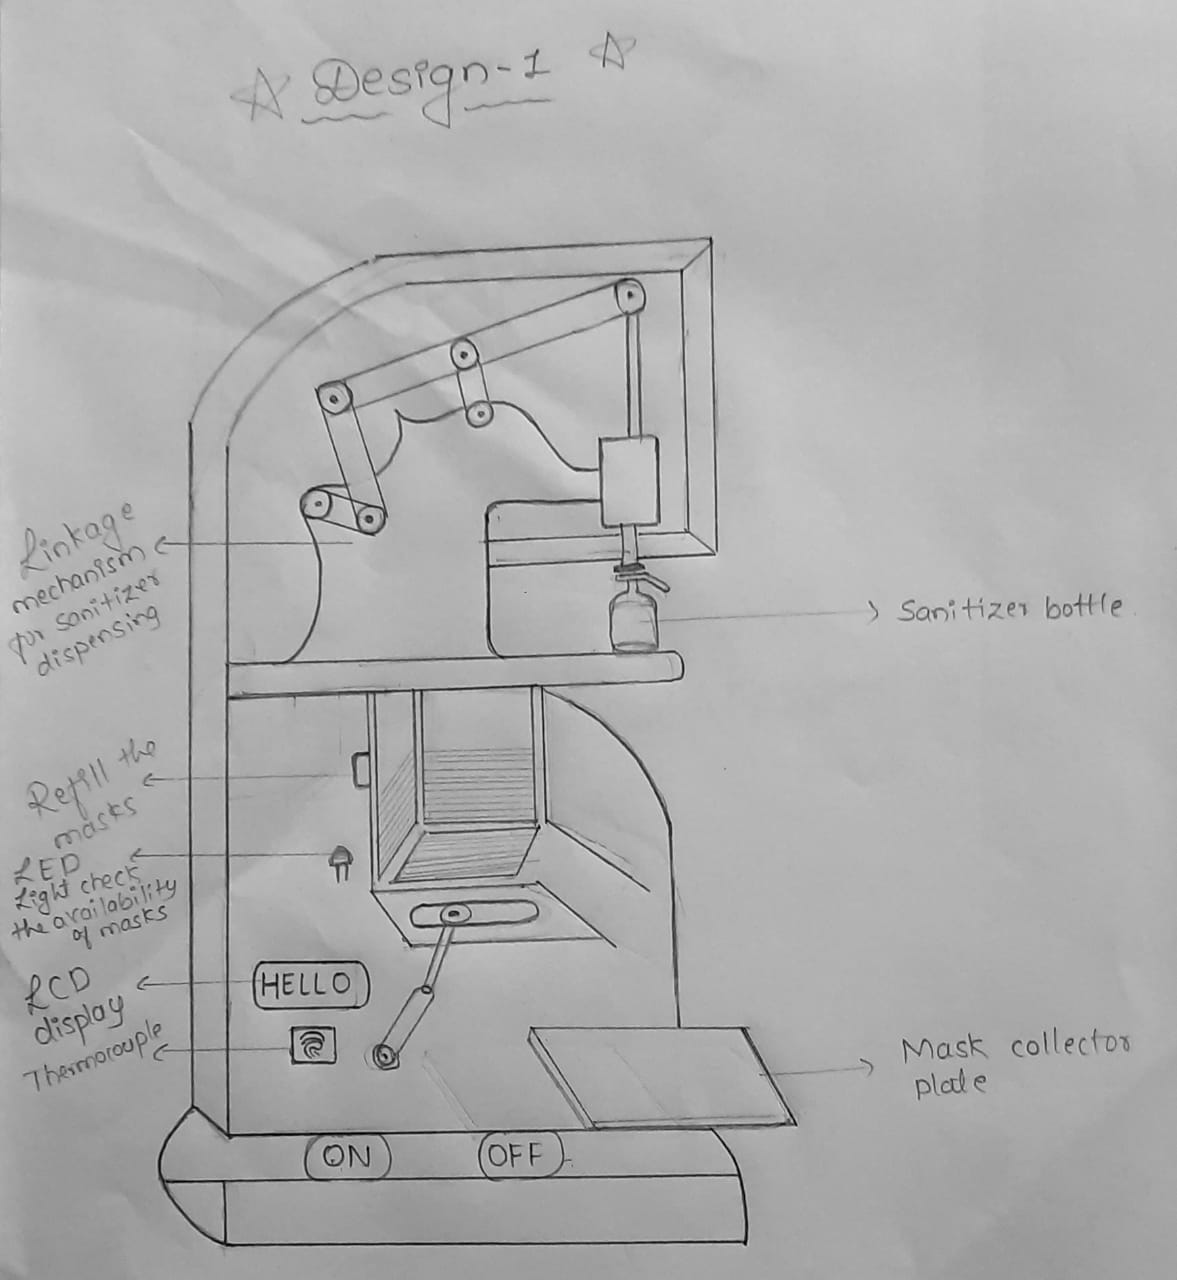 Design-1
Linkage
mechanism
for sanitizer
dispensing
Sanitizer bottle
Refill the
masks
LED
Light check
the availability
of masks
LCD
display
HELLO
Thermocouple
Mask collector
plate
ON
OFF